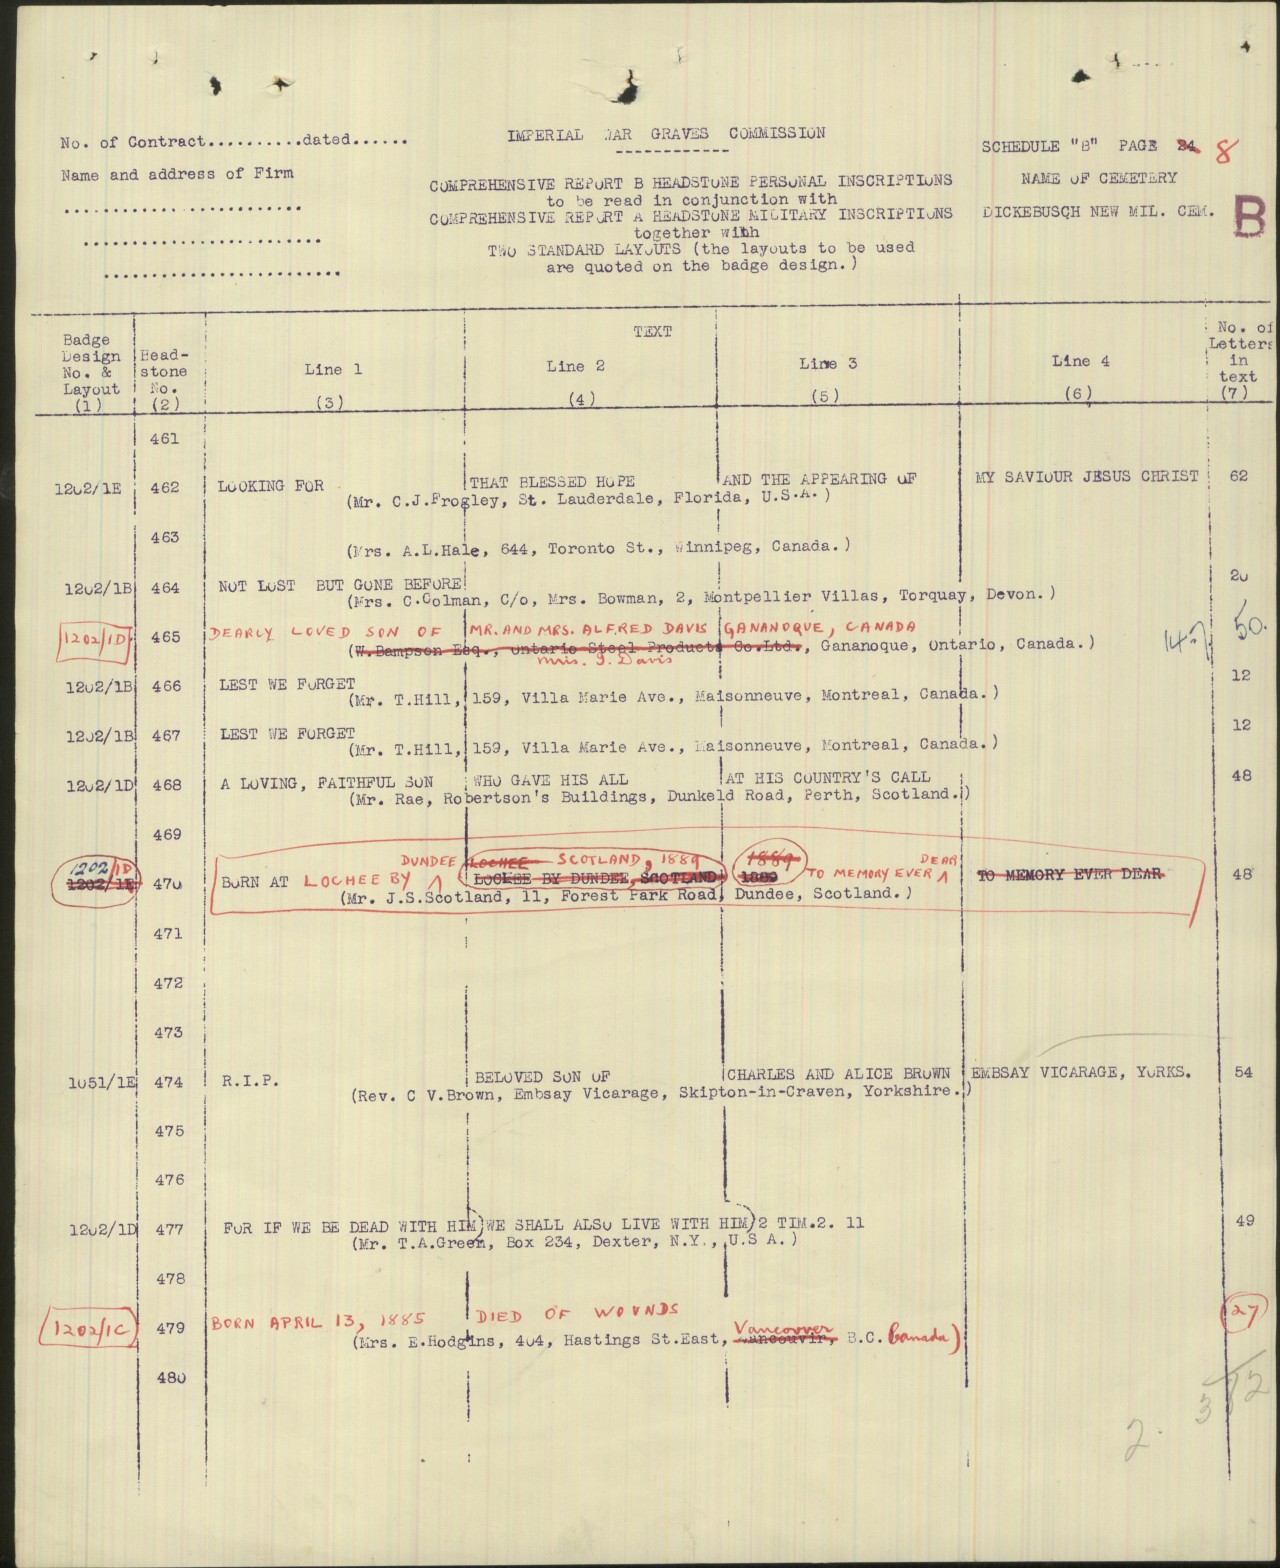 No. of Contract..........dated......
IMPERIAL WAR GRAVES COMMISSION
SCHEDULE "B" PAGE 24 8
Name and address of Firm
COMPREHENSIVE REPORT B HEADSTONE PERSONAL INSCRIPTIONS
NAME OF CEMETERY
to be read in conjunction with
COMPREHENSIVE REPORT A HEADSTONE MILITARY INSCRIPTIONS
DICKEBUSCH NEW MIL. CEM.
B
together with
TWO STANDARD LAYOUTS (the layouts to be used
are quoted on the badge design.)
Badge Design No. & Layout (1)
Head-stone No. (2)
TEXT
Line 1 (3)
Line 2 (4)
Line 3 (5)
Line 4 (6)
No. of Letters in text (7)
461
1202/1E 462 LOOKING FOR THAT BLESSED HOPE AND THE APPEARING OF MY SAVIOUR JESUS CHRIST 62
(Mr. C.J.Frogley, St. Lauderdale, Florida, U.S.A.)
463
(Mrs. A.L.Hale, 644, Toronto St., Winnipeg, Canada.)
1202/1B 464 NOT LOST BUT GONE BEFORE 20
(Mrs. C.Colman, C/o, Mrs. Bowman, 2, Montpellier Villas, Torquay, Devon.)
1202/1D 465 DEARLY LOVED SON OF MR. AND MRS. ALFRED DAVIS GANANOQUE, CANADA 50.
(W.Bampson Esq., Ontario Steel Products Co.Ltd., Gananoque, Ontario, Canada.)
Mrs. J. Davis
1202/1B 466 LEST WE FORGET 12
(Mr. T.Hill, 159, Villa Marie Ave., Maisonneuve, Montreal, Canada.)
1202/1B 467 LEST WE FORGET 12
(Mr. T.Hill, 159, Villa Marie Ave., Maisonneuve, Montreal, Canada.)
1202/1D 468 A LOVING, FAITHFUL SON WHO GAVE HIS ALL AT HIS COUNTRY'S CALL 48
(Mr. Rae, Robertson's Buildings, Dunkeld Road, Perth, Scotland.)
469
1202/1D DUNDEE LOCHEE SCOTLAND, 1889 1889 DEAR
1202/1E 470 BORN AT LOCHEE BY LOCHEE BY DUNDEE, SCOTLAND 1889 TO MEMORY EVER TO MEMORY EVER DEAR 48
(Mr. J.S.Scotland, 11, Forest Park Road, Dundee, Scotland.)
471
472
473
1051/1E 474 R.I.P. BELOVED SON OF CHARLES AND ALICE BROWN EMBSAY VICARAGE, YORKS. 54
(Rev. C V.Brown, Embsay Vicarage, Skipton-in-Craven, Yorkshire.)
475
476
1202/1D 477 FOR IF WE BE DEAD WITH HIM WE SHALL ALSO LIVE WITH HIM 2 TIM.2. 11 49
(Mr. T.A.Green, Box 234, Dexter, N.Y., U.S A.)
478
1202/1C 479 BORN APRIL 13, 1885 DIED OF WOUNDS 27
Vancouver
(Mrs. E.Hodgins, 404, Hastings St.East, Vancouvir, B.C. Canada)
480